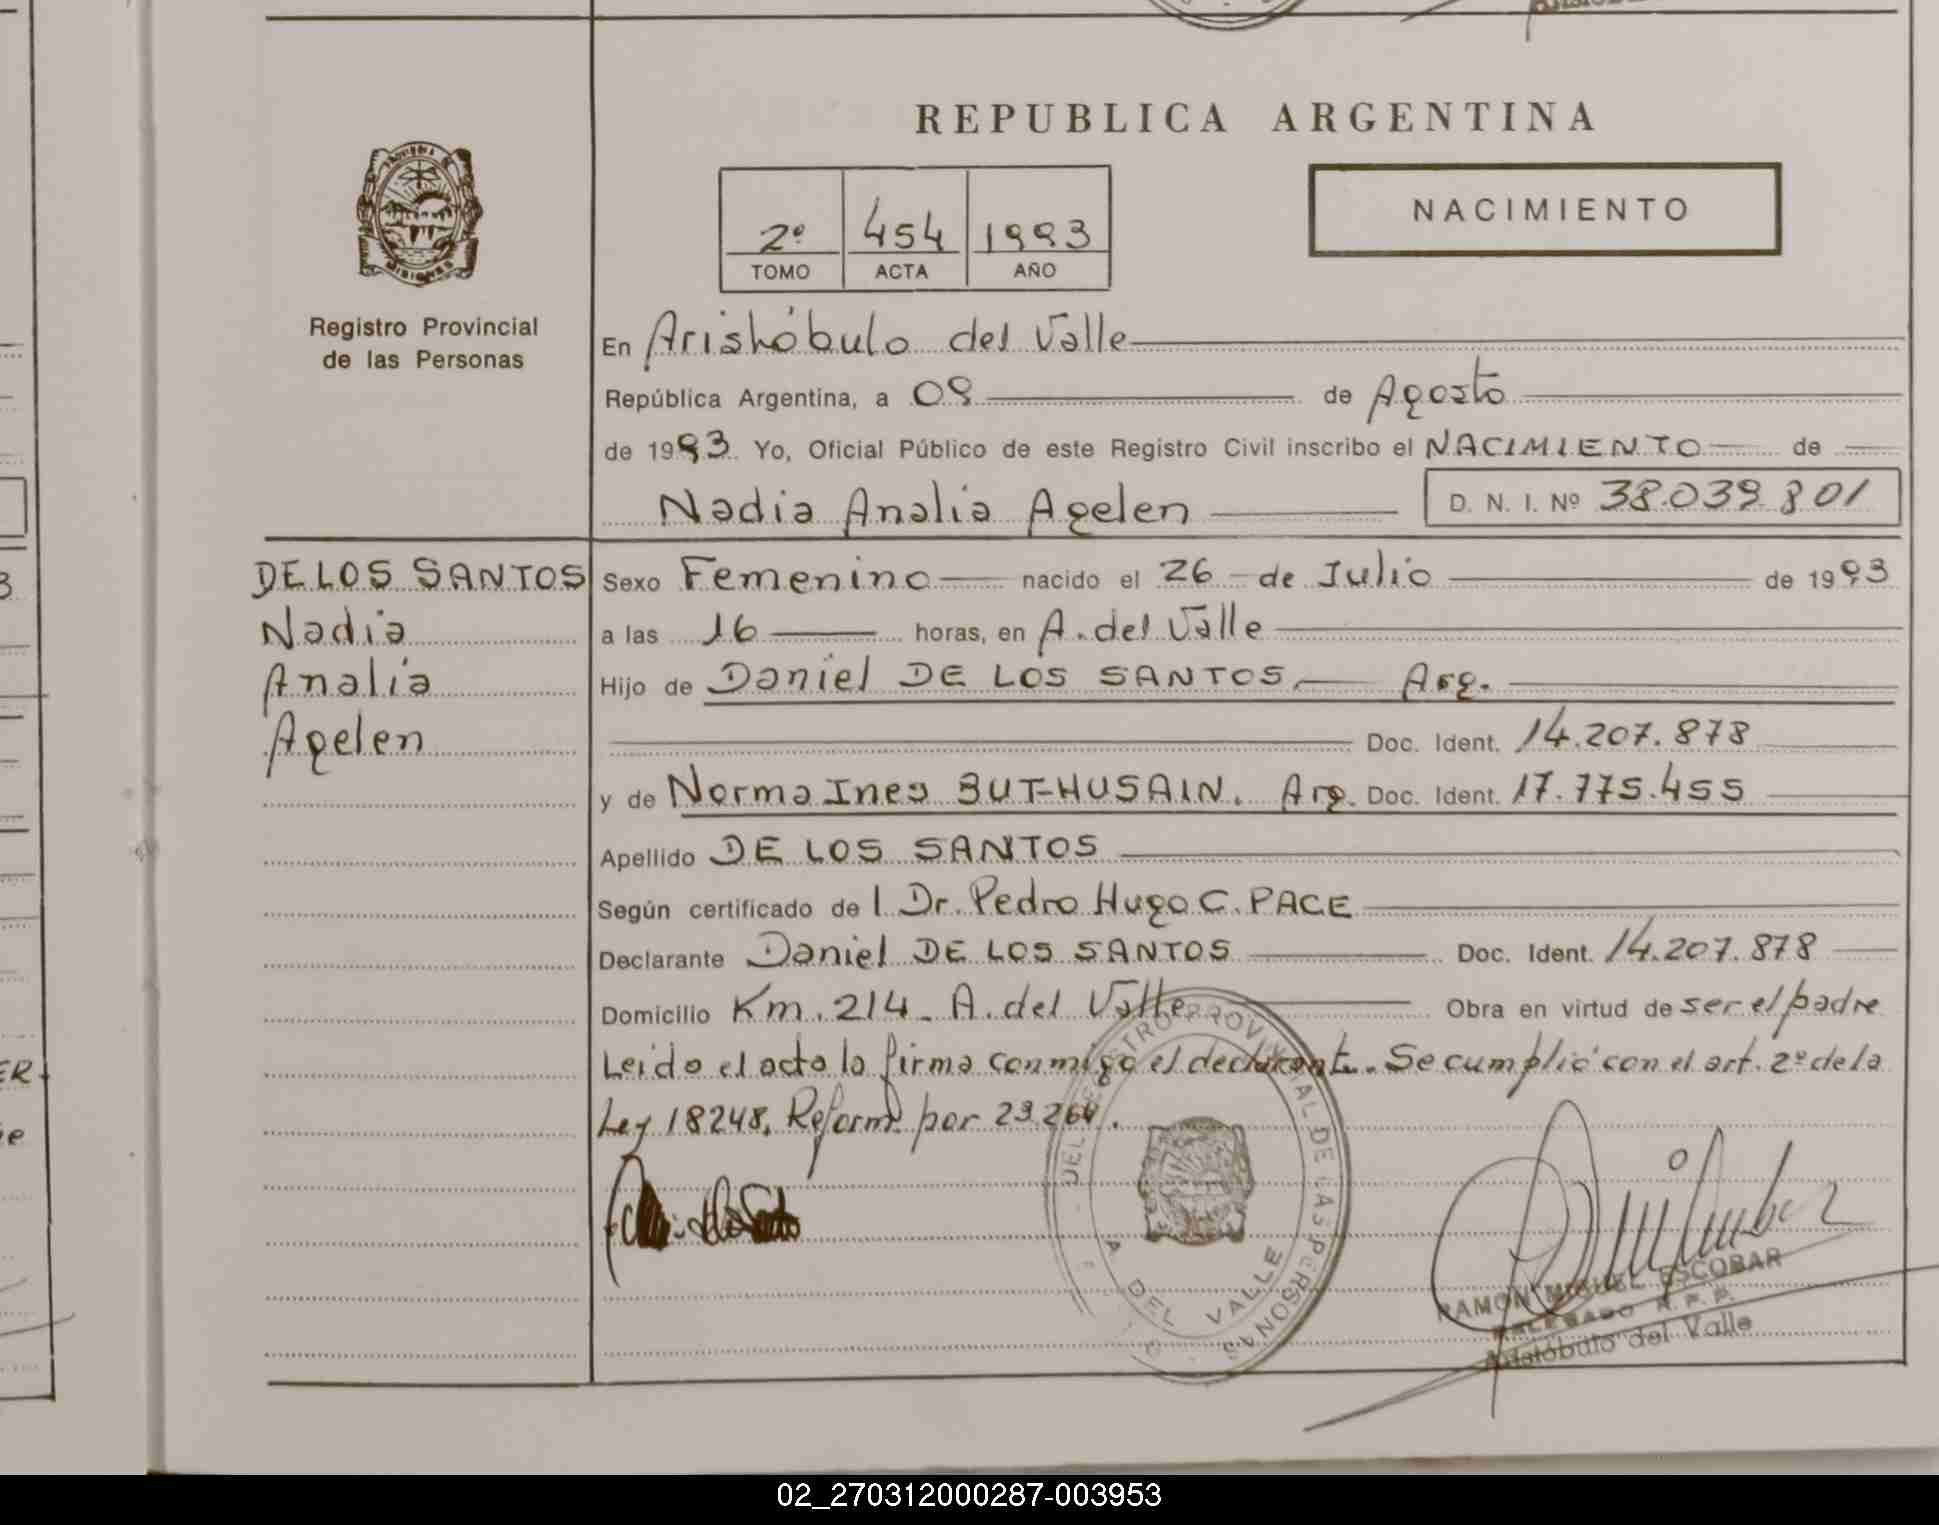 REPUBLICA ARGENTINA
NACIMIENTO
2º 454 1993
TOMO ACTA AÑO
Registro Provincial
de las Personas
En Aristóbulo del Valle
República Argentina, a 09 de Agosto
de 1993 Yo, Oficial Público de este Registro Civil inscribo el NACIMIENTO de
Nadia Analia Agelen D. N. I. Nº 38.039.801
DE LOS SANTOS
Nadia
Analia
Agelen
Sexo Femenino nacido el 26 de Julio de 1993
a las 16 horas, en A. del Valle
Hijo de Daniel DE LOS SANTOS. Arg.
Doc. Ident. 14.207.878
y de Norma Ines BUT-HUSAIN. Arg. Doc. Ident. 17.775.455
Apellido DE LOS SANTOS
Según certificado de l Dr. Pedro Hugo C. PACE
Declarante Daniel DE LOS SANTOS Doc. Ident. 14.207.878
Domicilio Km. 214. A. del Valle Obra en virtud de ser el padre
Leido el acta la firma conmigo el declarante. Se cumplió con el art. 2º de la
Ley 18248. Reform. por 23.264.
DEL REGISTRO PROVINCIAL DE LAS PERSONAS
A DEL VALLE
RAMON MIGUEL ESCOBAR
DELEGADO R. P. P.
Aristóbulo del Valle
02_270312000287-003953